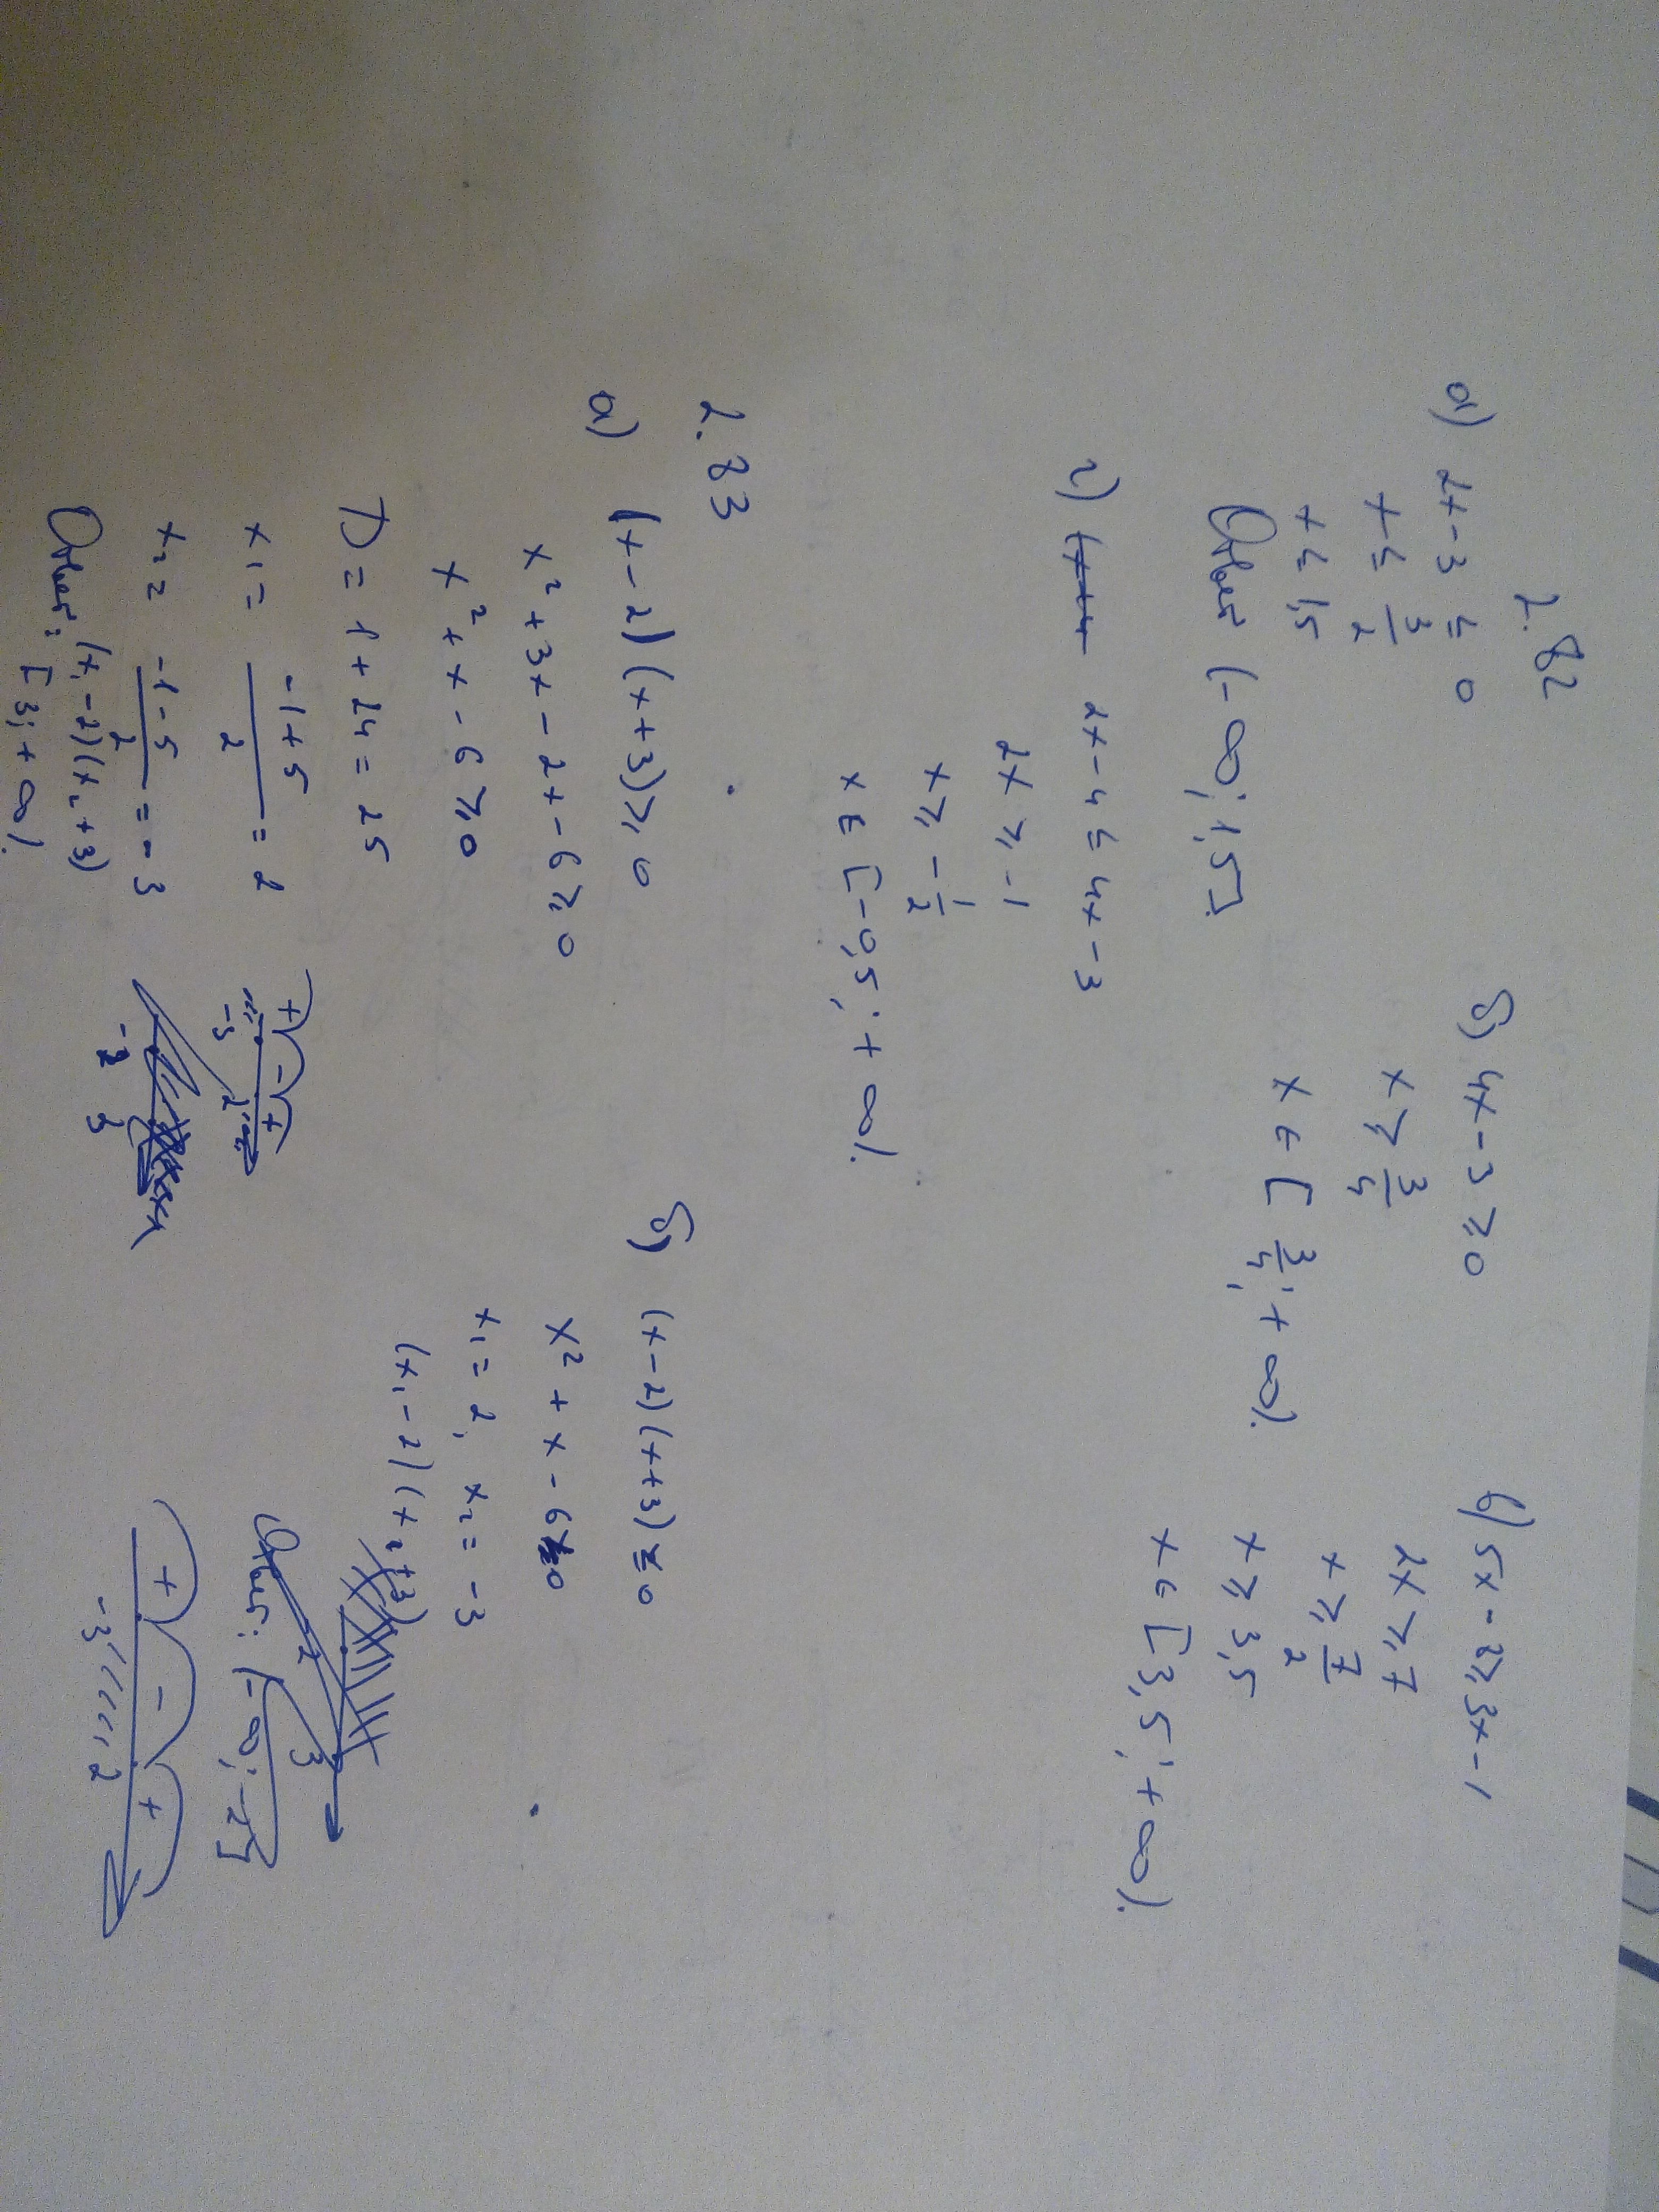 2.82
а) 2x-3 ≤ 0
x ≤ 3/2
x ≤ 1,5
Ответ (-∞; 1,5].
б) 4x-3 ≥ 0
x ≥ 3/4
x ∈ [3/4; +∞).
в) 5x-8≥3x-1
2x ≥ 7
x ≥ 7/2
x ≥ 3,5
x ∈ [3,5; +∞).
г) 2x-4 ≤ 4x-3
2x ≥ -1
x ≥ -1/2
x ∈ [-0,5; +∞).
2.83
а) (x-2)(x+3) ≥ 0
x²+3x-2x-6≥0
x²+x-6≥0
D=1+24=25
x₁ = (-1+5)/2 = 2
x₂ = (-1-5)/2 = -3
Ответ: (x₁-2)(x₂+3)
[3; +∞).
+ - +
-3 2
б) (x-2)(x+3) ≤ 0
x²+x-6≤0
x₁=2, x₂=-3
(x₁-2)(x₂+3)
+ - +
-3 2